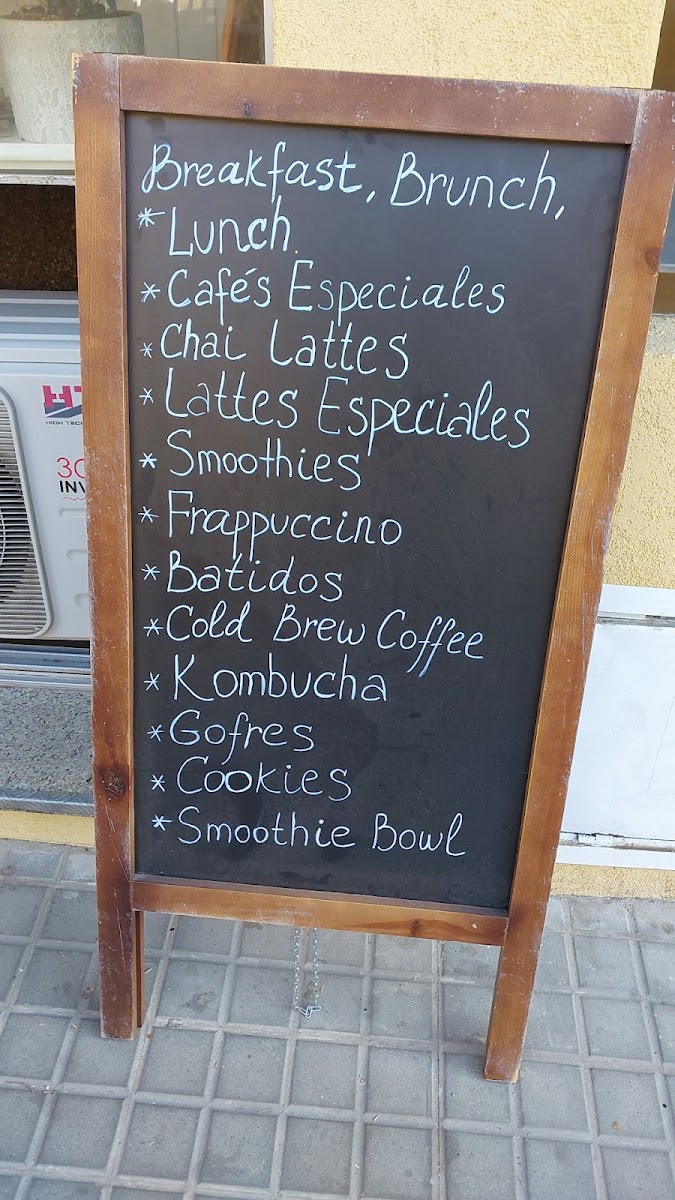 Breakfast, Brunch,
* Lunch.
* Cafés Especiales
* Chai Lattes
* Lattes Especiales
* Smoothies
* Frappuccino
* Batidos
* Cold Brew Coffee
* Kombucha
* Gofres
* Cookies
* Smoothie Bowl
HIGH TEC
INV